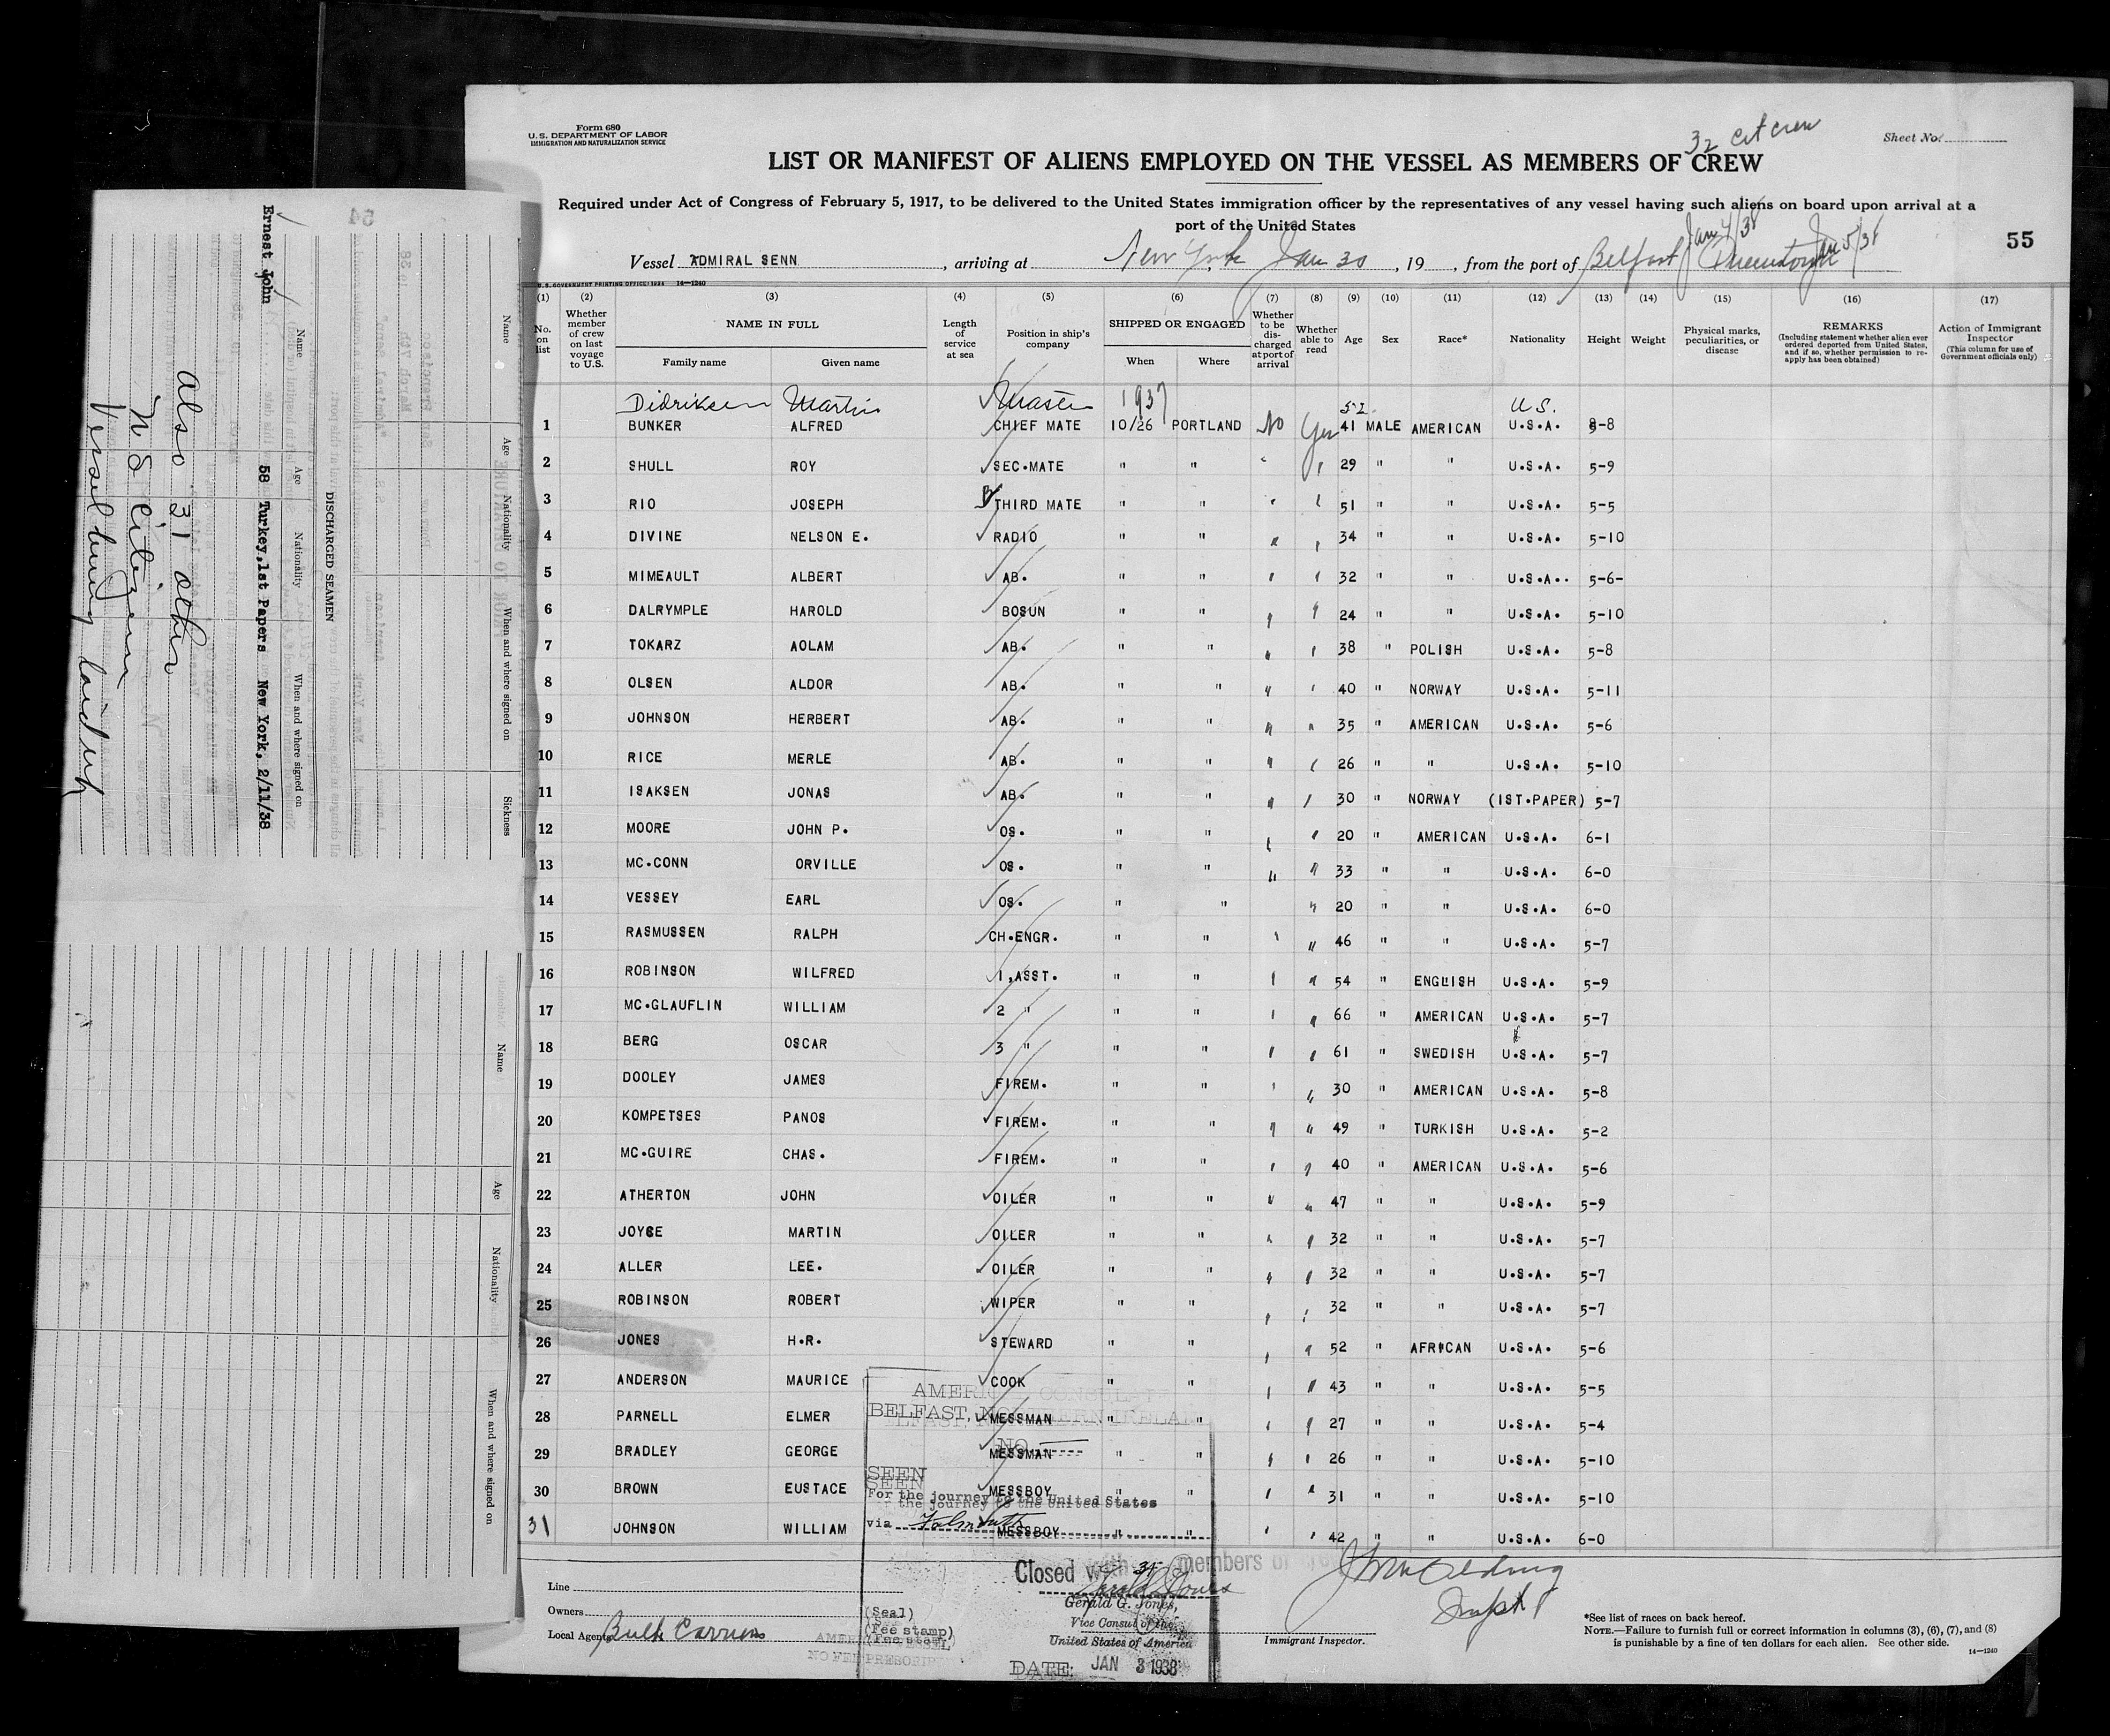 Form 680
U. S. DEPARTMENT OF LABOR
IMMIGRATION AND NATURALIZATION SERVICE
32 cit crew
Sheet No.
LIST OR MANIFEST OF ALIENS EMPLOYED ON THE VESSEL AS MEMBERS OF CREW
Required under Act of Congress of February 5, 1917, to be delivered to the United States immigration officer by the representatives of any vessel having such aliens on board upon arrival at a
port of the United States
55
Jan 4/38 Jan 5/38
Vessel ADMIRAL SENN, arriving at New York Jan 30, 19, from the port of Belfast
U. S. GOVERNMENT PRINTING OFFICE: 1934 14—1240
(1) (2) (3) (4) (5) (6) (7) (8) (9) (10) (11) (12) (13) (14) (15) (16) (17)
No. on list Whether member of crew on last voyage to U.S. NAME IN FULL Family name Given name Length of service at sea Position in ship's company SHIPPED OR ENGAGED When Where Whether to be discharged at port of arrival Whether able to read Age Sex Race* Nationality Height Weight Physical marks, peculiarities, or disease REMARKS (Including statement whether alien ever ordered deported from United States, and if so, whether permission to reapply has been obtained) Action of Immigrant Inspector (This column for use of Government officials only)
Didriksen Martin Master 1937 52 U.S.
1 BUNKER ALFRED CHIEF MATE 10/26 PORTLAND No Yes 41 MALE AMERICAN U.S.A. 5-8
2 SHULL ROY SEC.MATE " " " " 29 " " U.S.A. 5-9
3 RIO JOSEPH THIRD MATE " " " " 51 " " U.S.A. 5-5
4 DIVINE NELSON E. RADIO " " " " 34 " " U.S.A. 5-10
5 MIMEAULT ALBERT AB. " " " " 32 " " U.S.A.. 5-6-
6 DALRYMPLE HAROLD BOSUN " " " " 24 " " U.S.A. 5-10
7 TOKARZ AOLAM AB. " " " " 38 " POLISH U.S.A. 5-8
8 OLSEN ALDOR AB. " " " " 40 " NORWAY U.S.A. 5-11
9 JOHNSON HERBERT AB. " " " " 35 " AMERICAN U.S.A. 5-6
10 RICE MERLE AB. " " " " 26 " " U.S.A. 5-10
11 ISAKSEN JONAS AB. " " " " 30 " NORWAY (IST.PAPER) 5-7
12 MOORE JOHN P. OS. " " " " 20 " AMERICAN U.S.A. 6-1
13 MC.CONN ORVILLE OS. " " " " 33 " " U.S.A. 6-0
14 VESSEY EARL OS. " " " 20 " " U.S.A. 6-0
15 RASMUSSEN RALPH CH.ENGR. " " " " 46 " " U.S.A. 5-7
16 ROBINSON WILFRED 1,ASST. " " " " 54 " ENGLISH U.S.A. 5-9
17 MC.GLAUFLIN WILLIAM 2 " " " " " 66 " AMERICAN U.S.A. 5-7
18 BERG OSCAR 3 " " " " " 61 " SWEDISH U.S.A. 5-7
19 DOOLEY JAMES FIREM. " " " " 30 " AMERICAN U.S.A. 5-8
20 KOMPETSES PANOS FIREM. " " " " 49 " TURKISH U.S.A. 5-2
21 MC.GUIRE CHAS. FIREM. " " " " 40 " AMERICAN U.S.A. 5-6
22 ATHERTON JOHN OILER " " " " 47 " " U.S.A. 5-9
23 JOYCE MARTIN OILER " " " " 32 " " U.S.A. 5-7
24 ALLER LEE. OILER " " " " 32 " " U.S.A. 5-7
25 ROBINSON ROBERT WIPER " " " " 32 " " U.S.A. 5-7
26 JONES H.R. STEWARD " " " " 52 " AFRICAN U.S.A. 5-6
27 ANDERSON MAURICE COOK " " " " 43 " " U.S.A. 5-5
28 PARNELL ELMER MESSMAN " " " " 27 " " U.S.A. 5-4
29 BRADLEY GEORGE MESSMAN " " " " 26 " " U.S.A. 5-10
30 BROWN EUSTACE MESSBOY " " " " 31 " " U.S.A. 5-10
31 JOHNSON WILLIAM MESSBOY " " " " 42 " " U.S.A. 6-0
AMERICAN CONSULATE
BELFAST, NORTHERN IRELAND
NO.
SEEN
For the journey to the United States
via Falmouth
Closed with 31 members of crew
Gerald G. Jones,
Vice Consul of the
United States of America
DATE: JAN 3 1938
(Seal)
(Fee stamp)
NO FEE PRESCRIBED
Line
Owners
Local Agents Bulk Carriers
Inspt
Immigrant Inspector.
*See list of races on back hereof.
NOTE.—Failure to furnish full or correct information in columns (3), (6), (7), and (8)
is punishable by a fine of ten dollars for each alien. See other side.
14—1240
54
Name Age Nationality When and where signed on Sickness
DISCHARGED SEAMEN
Name Age Nationality When and where signed on
Ernest John 58 Turkey,1st Papers New York, 2/11/38
Also 31 other
U S Citizens
Vessel being laid up
Name Age Nationality When and where signed on